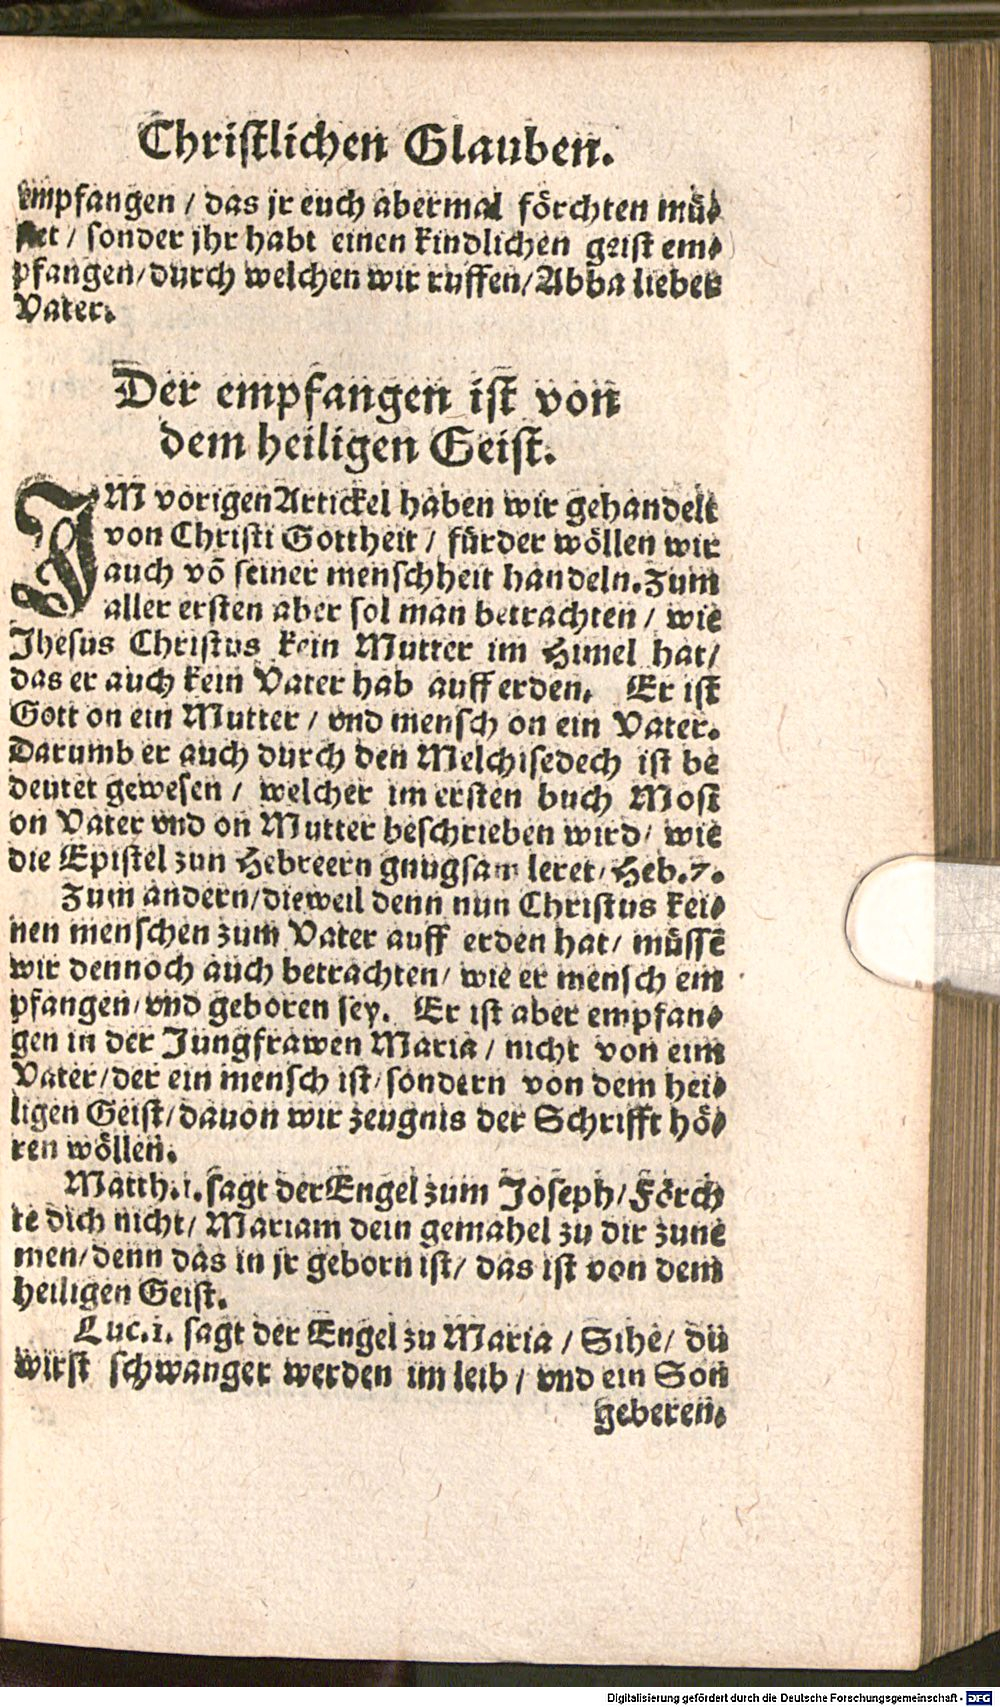 Christlichen Glauben.
empfangen / das jr euch abermal förchten mü⸗
stet / sonder jhr habt einen kindlichen geist em⸗
pfangen / durch welchen wir ruffen / Abba lieber
Vater.
Der empfangen ist von
dem heiligen Geist.
IM vorigen Artickel haben wir gehandelt
von Christi Gottheit / fürder wöllen wir
auch võ seiner menschheit handeln. Zum
aller ersten aber sol man betrachten / wie
Jhesus Christus kein Mutter im Himel hat /
das er auch kein Vater hab auff erden. Er ist
Gott on ein Mutter / vnd mensch on ein Vater.
Darumb er auch durch den Melchisedech ist be
deutet gewesen / welcher im ersten buch Mosi
on Vater vnd on Mutter beschrieben wird / wie
die Epistel zun Hebreern gnugsam leret / Heb. 7.
Zum andern / dieweil denn nun Christus kei⸗
nen menschen zum Vater auff erden hat / müssẽ
wir dennoch auch betrachten / wie er mensch em
pfangen / vnd geboren sey. Er ist aber empfan⸗
gen in der Jungfrawen Maria / nicht von eim
Vater / der ein mensch ist / sondern von dem hei⸗
ligen Geist / dauon wir zeugnis der Schrifft hö⸗
ren wöllen.
Matth. 1. sagt der Engel zum Joseph / Förch
te dich nicht / Mariam dein gemahel zu dir zune
men / denn das in jr geborn ist / das ist von dem
heiligen Geist.
Luc. 1. sagt der Engel zu Maria / Sihe / du
wirst schwanger werden im leib / vnd ein Son
geberen.
Digitalisierung gefördert durch die Deutsche Forschungsgemeinschaft - DFG